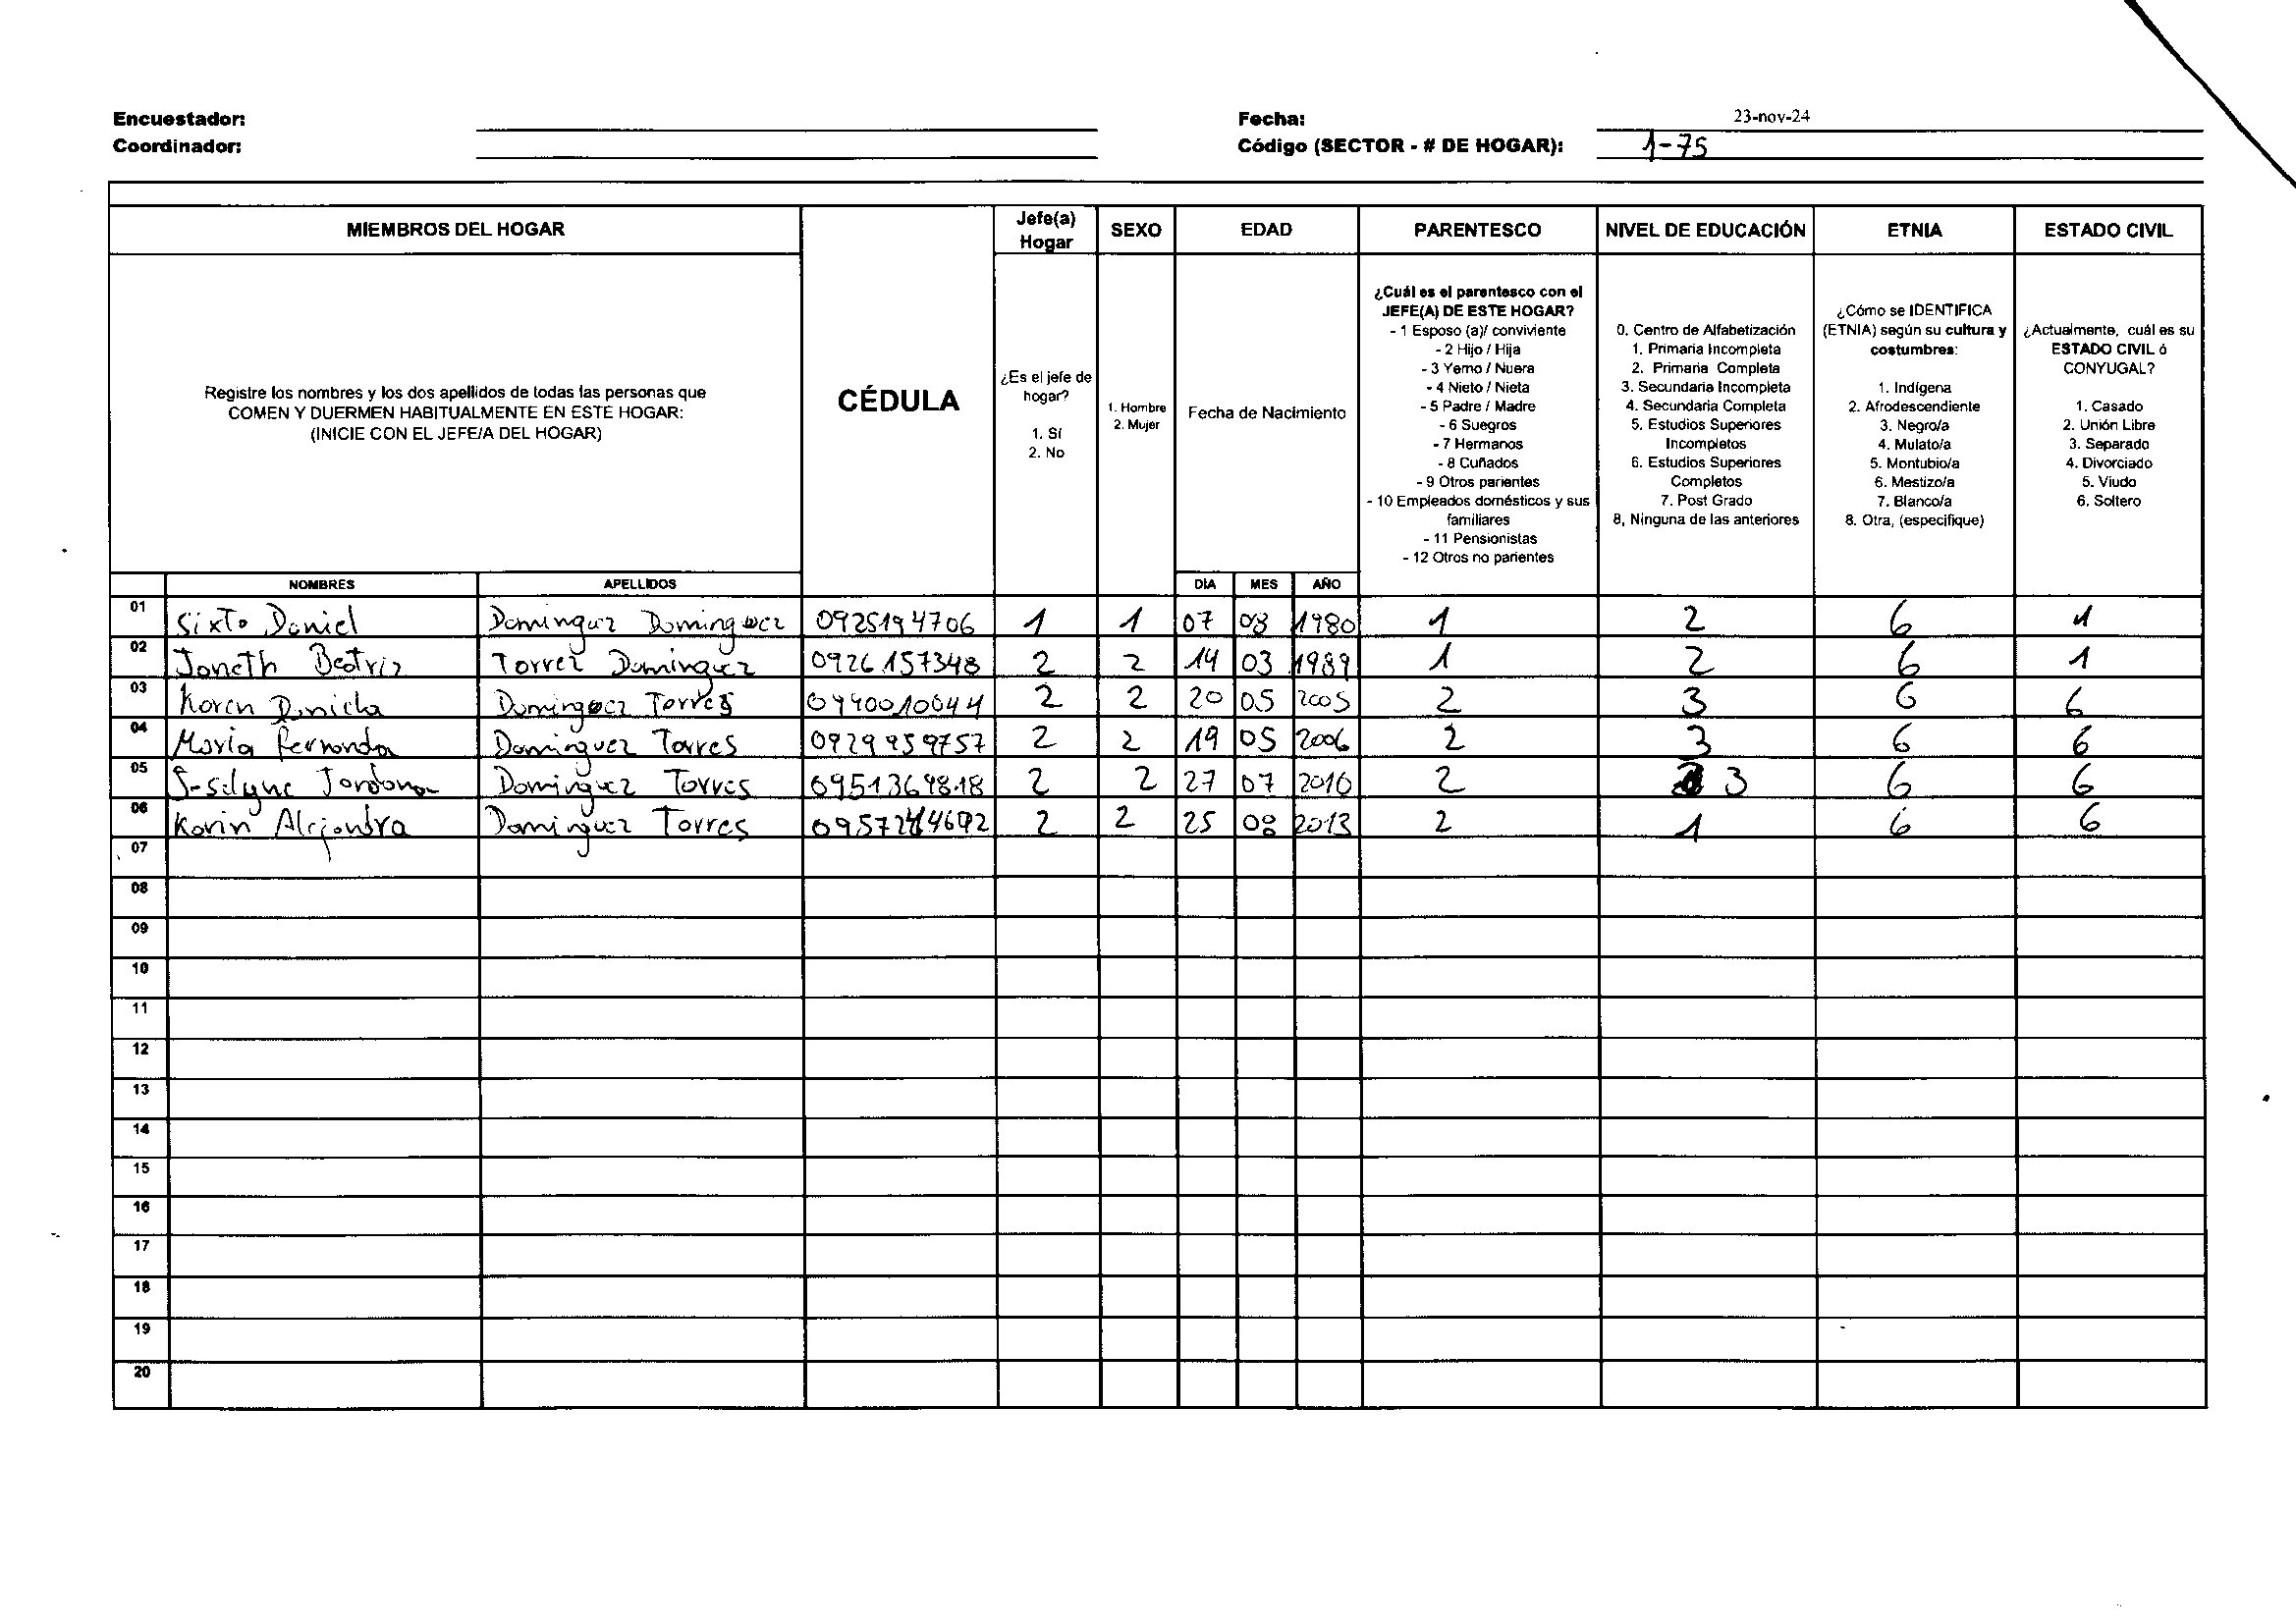 Encuestador:
Fecha: 23-nov-24
Coordinador:
Código (SECTOR - # DE HOGAR): 1-75
MIEMBROS DEL HOGAR
CÉDULA
Jefe(a) Hogar
SEXO
EDAD
PARENTESCO
NIVEL DE EDUCACIÓN
ETNIA
ESTADO CIVIL
Registre los nombres y los dos apellidos de todas las personas que
COMEN Y DUERMEN HABITUALMENTE EN ESTE HOGAR:
(INICIE CON EL JEFE/A DEL HOGAR)
¿Es el jefe de
hogar?
1. Sí
2. No
1. Hombre
2. Mujer
Fecha de Nacimiento
¿Cuál es el parentesco con el
JEFE(A) DE ESTE HOGAR?
- 1 Esposo (a)/ conviviente
- 2 Hijo / Hija
- 3 Yerno / Nuera
- 4 Nieto / Nieta
- 5 Padre / Madre
- 6 Suegros
- 7 Hermanos
- 8 Cuñados
- 9 Otros parientes
- 10 Empleados domésticos y sus
familiares
- 11 Pensionistas
- 12 Otros no parientes
0. Centro de Alfabetización
1. Primaria Incompleta
2. Primaria Completa
3. Secundaria Incompleta
4. Secundaria Completa
5. Estudios Superiores
Incompletos
6. Estudios Superiores
Completos
7. Post Grado
8, Ninguna de las anteriores
¿Cómo se IDENTIFICA
(ETNIA) según su cultura y
costumbres:
1. Indígena
2. Afrodescendiente
3. Negro/a
4. Mulato/a
5. Montubio/a
6. Mestizo/a
7. Blanco/a
8. Otra, (especifique)
¿Actualmente, cuál es su
ESTADO CIVIL ó
CONYUGAL?
1. Casado
2. Unión Libre
3. Separado
4. Divorciado
5. Viudo
6. Soltero
NOMBRES APELLIDOS DIA MES AÑO
01 Sixto Daniel Dominguez Dominguez 0925194706 1 1 07 08 1980 1 2 6 1
02 Janeth Beatriz Torrez Dominguez 0926157348 2 2 14 03 1989 1 2 6 1
03 Karen Daniela Dominguez Torres 2 2 20 05 2005 2 3 6 6
04 Maria fernanda Dominguez Torres 0929959757 2 2 19 05 2006 2 3 6 6
05 Jordana Dominguez Torres 2 2 27 07 2010 2 3 6 6
06 Karin Alejandra Dominguez Torres 2 2 25 08 2013 2 1 6 6
07
08
09
10
11
12
13
14
15
16
17
18
19
20